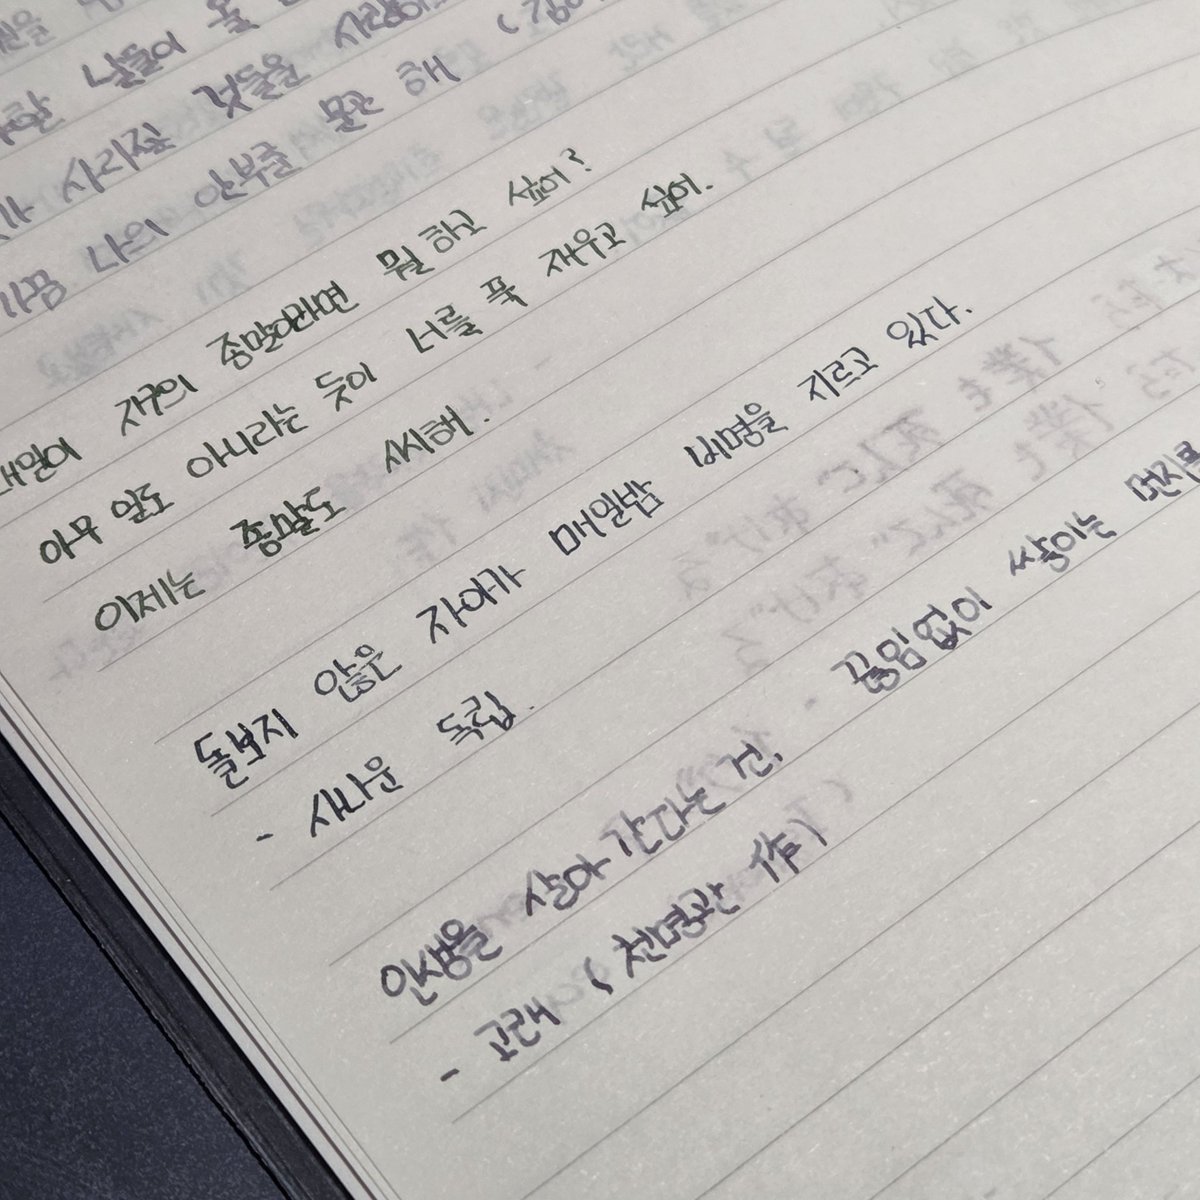 날들이
사라질 것들을
가끔 나의 안부를 묻곤 해
내일이 지구의 종말이라면 뭘 하고 싶어?
아무 일도 아니라는 듯이 너를 푹 재우고 싶어.
이제는 종말도 시시해.
돌보지 않은 자아가 매일밤 비명을 지르고 있다.
- 사나운 독립.
인생을 살아 간다는 건, 끊임없이 쌓이는 먼지를
- 고래 (천명관 作)